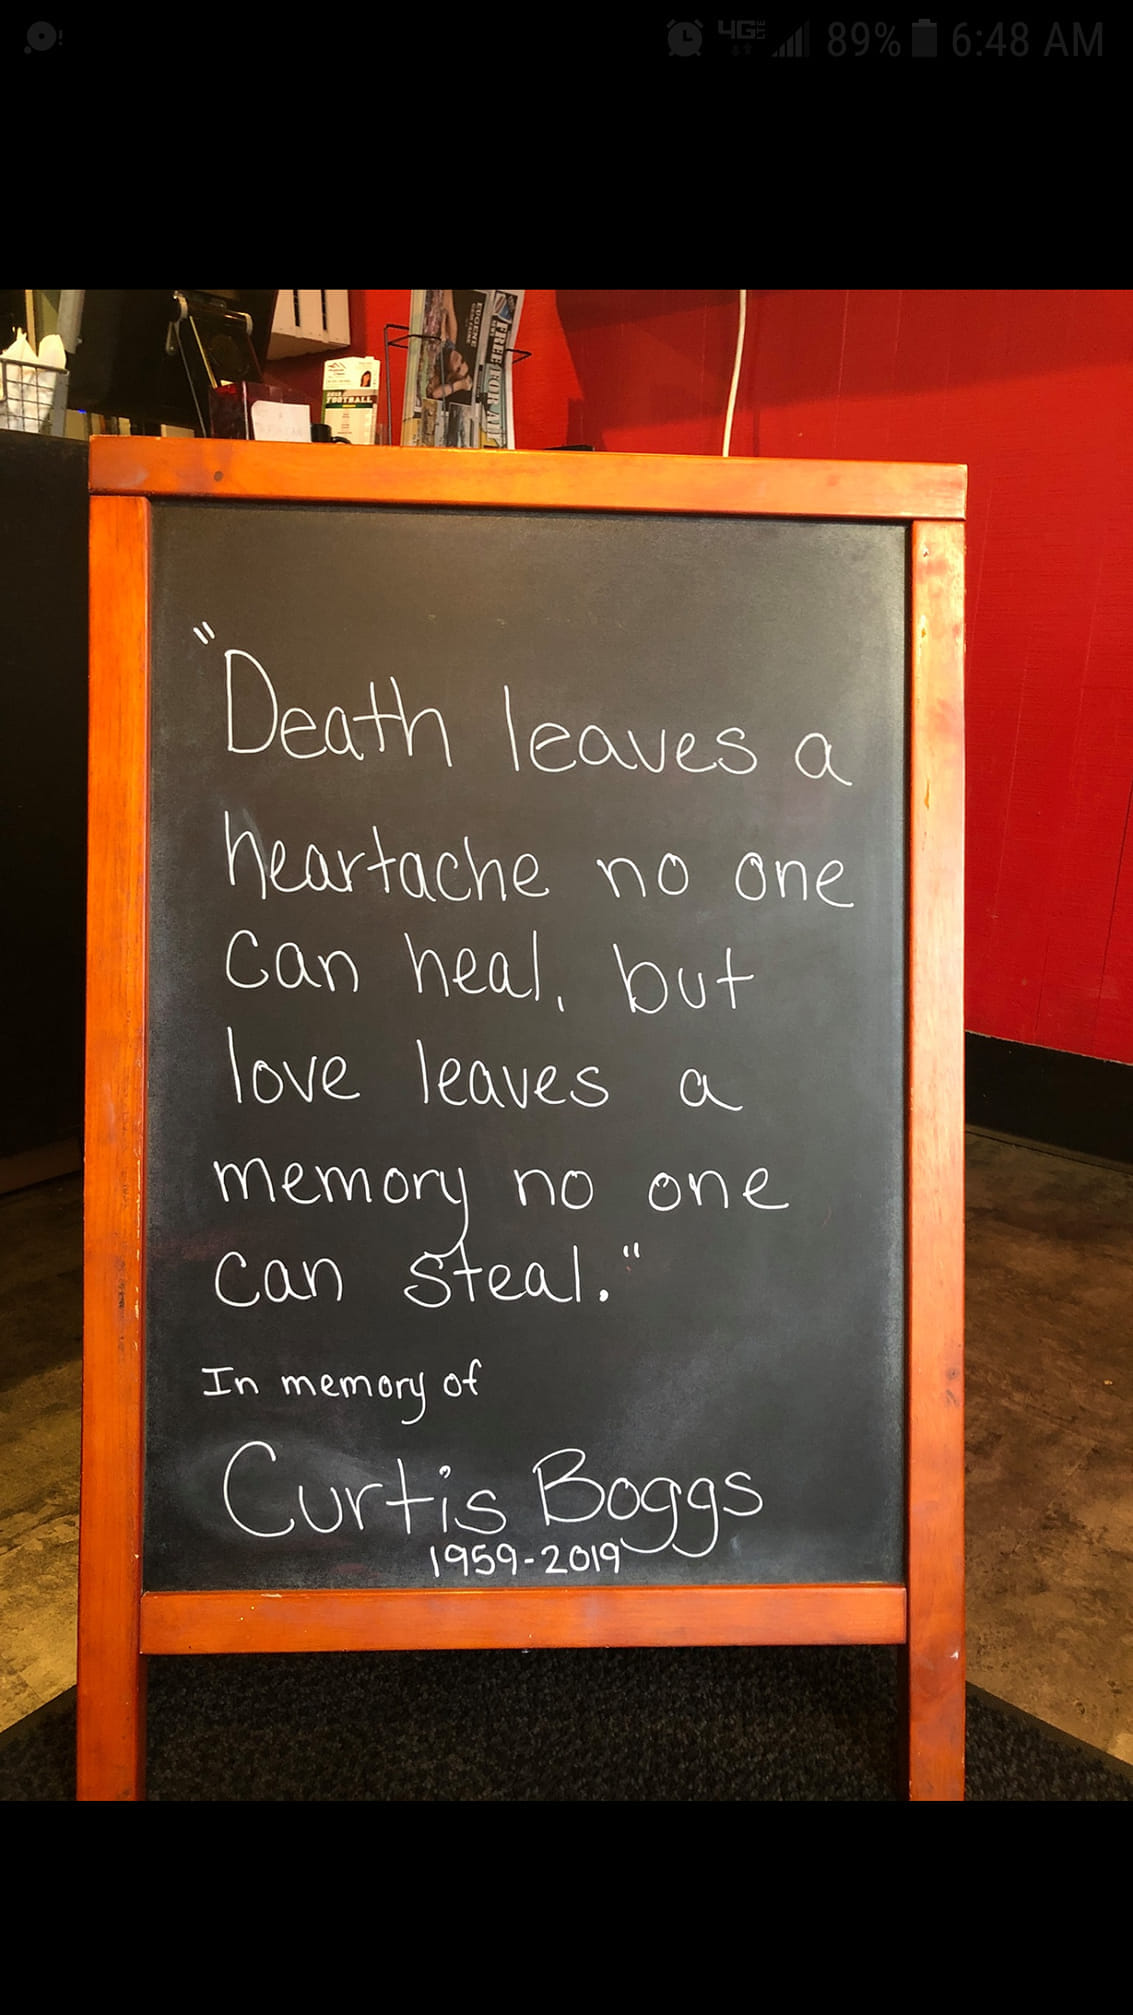 4G LTE 89% 6:48 AM
EUGENE
FREE FOR ALL
FOOTBALL
"Death leaves a
heartache no one
can heal, but
love leaves a
memory no one
can steal."
In memory of
Curtis Boggs
1959-2019